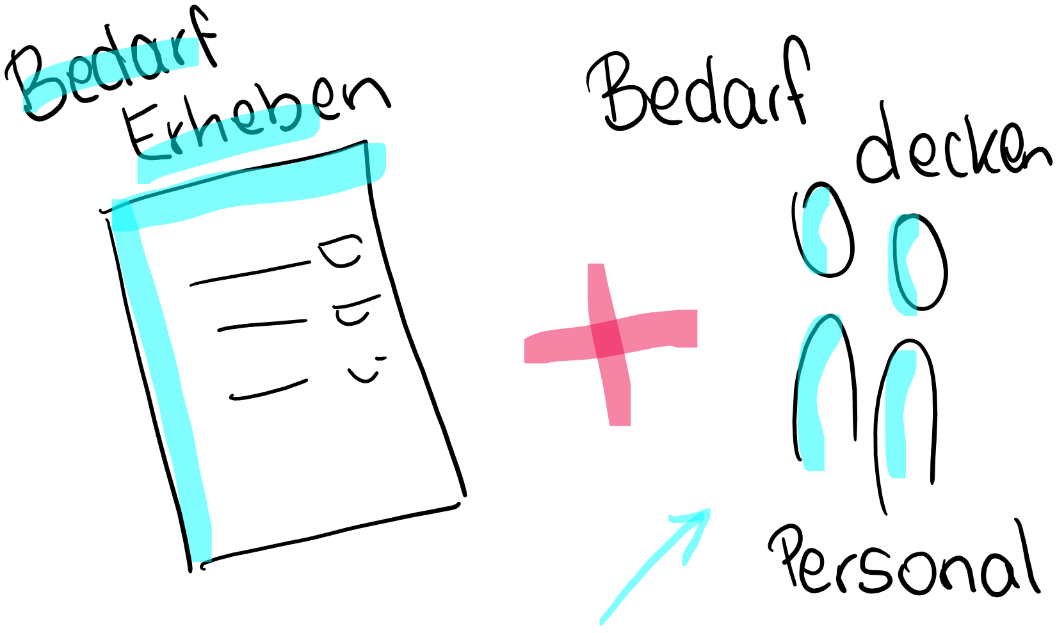 Bedarf
Erheben
Bedarf
decken
Personal